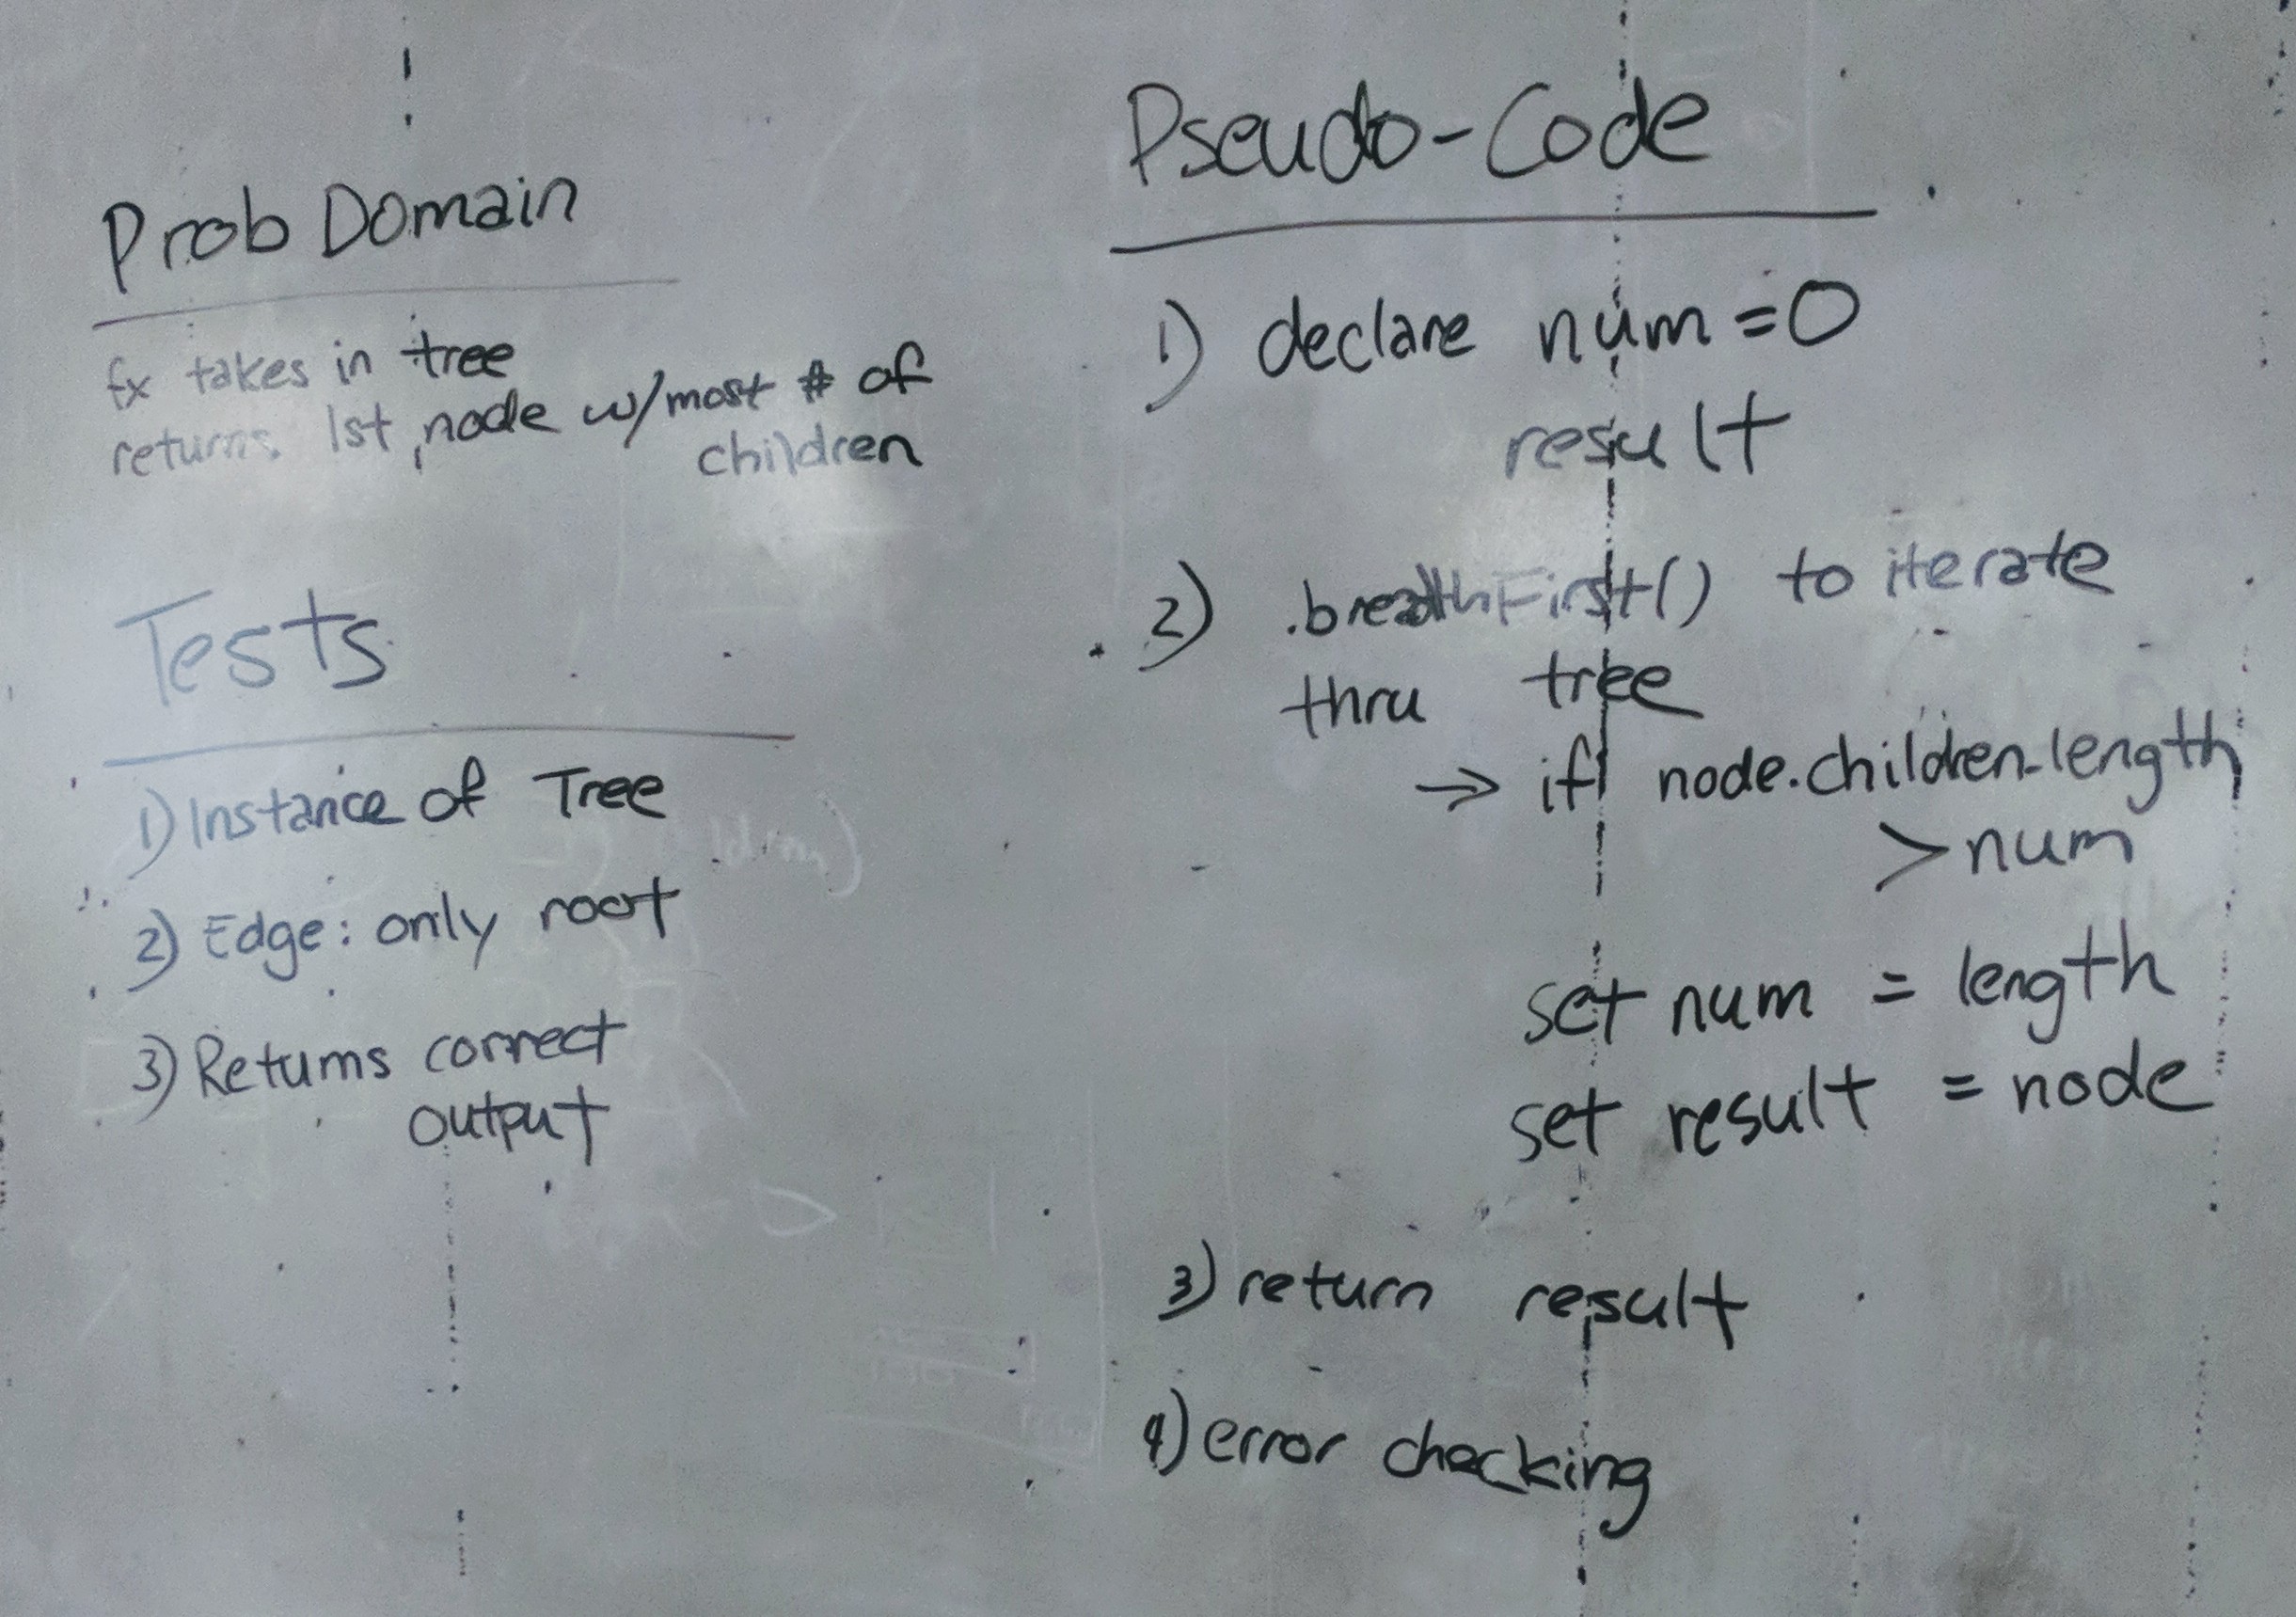 Prob Domain
fx takes in tree
returns 1st node w/most # of
children
Tests
1) Instance of Tree
2) Edge: only root
3) Returns correct
output
Pseudo-Code
1) declare num = 0
result
2) .breadthFirst() to iterate
thru tree
→ if node.children.length
> num
set num = length
set result = node
3) return result
4) error checking